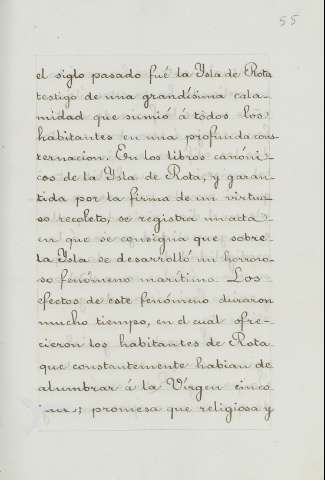 55
el siglo pasado fué la Ysla de Rota
testigo de una grandísima cala-
midad que sumió á todos los
habitantes en una profunda cons-
ternacion. En los libros canóni-
cos de la Ysla de Rota, y garan-
tida por la firma de un virtuo-
so recoleto, se registra un acta
en que se consigna que sobre
la Ysla se desarrolló un horroro-
so fenómeno marítimo. Los
efectos de este fenómeno duraron
mucho tiempo, en el cual ofre-
cieron los habitantes de Rota
que constantemente habian de
alumbrar á la Vírgen cinco
promesa que religiosa y